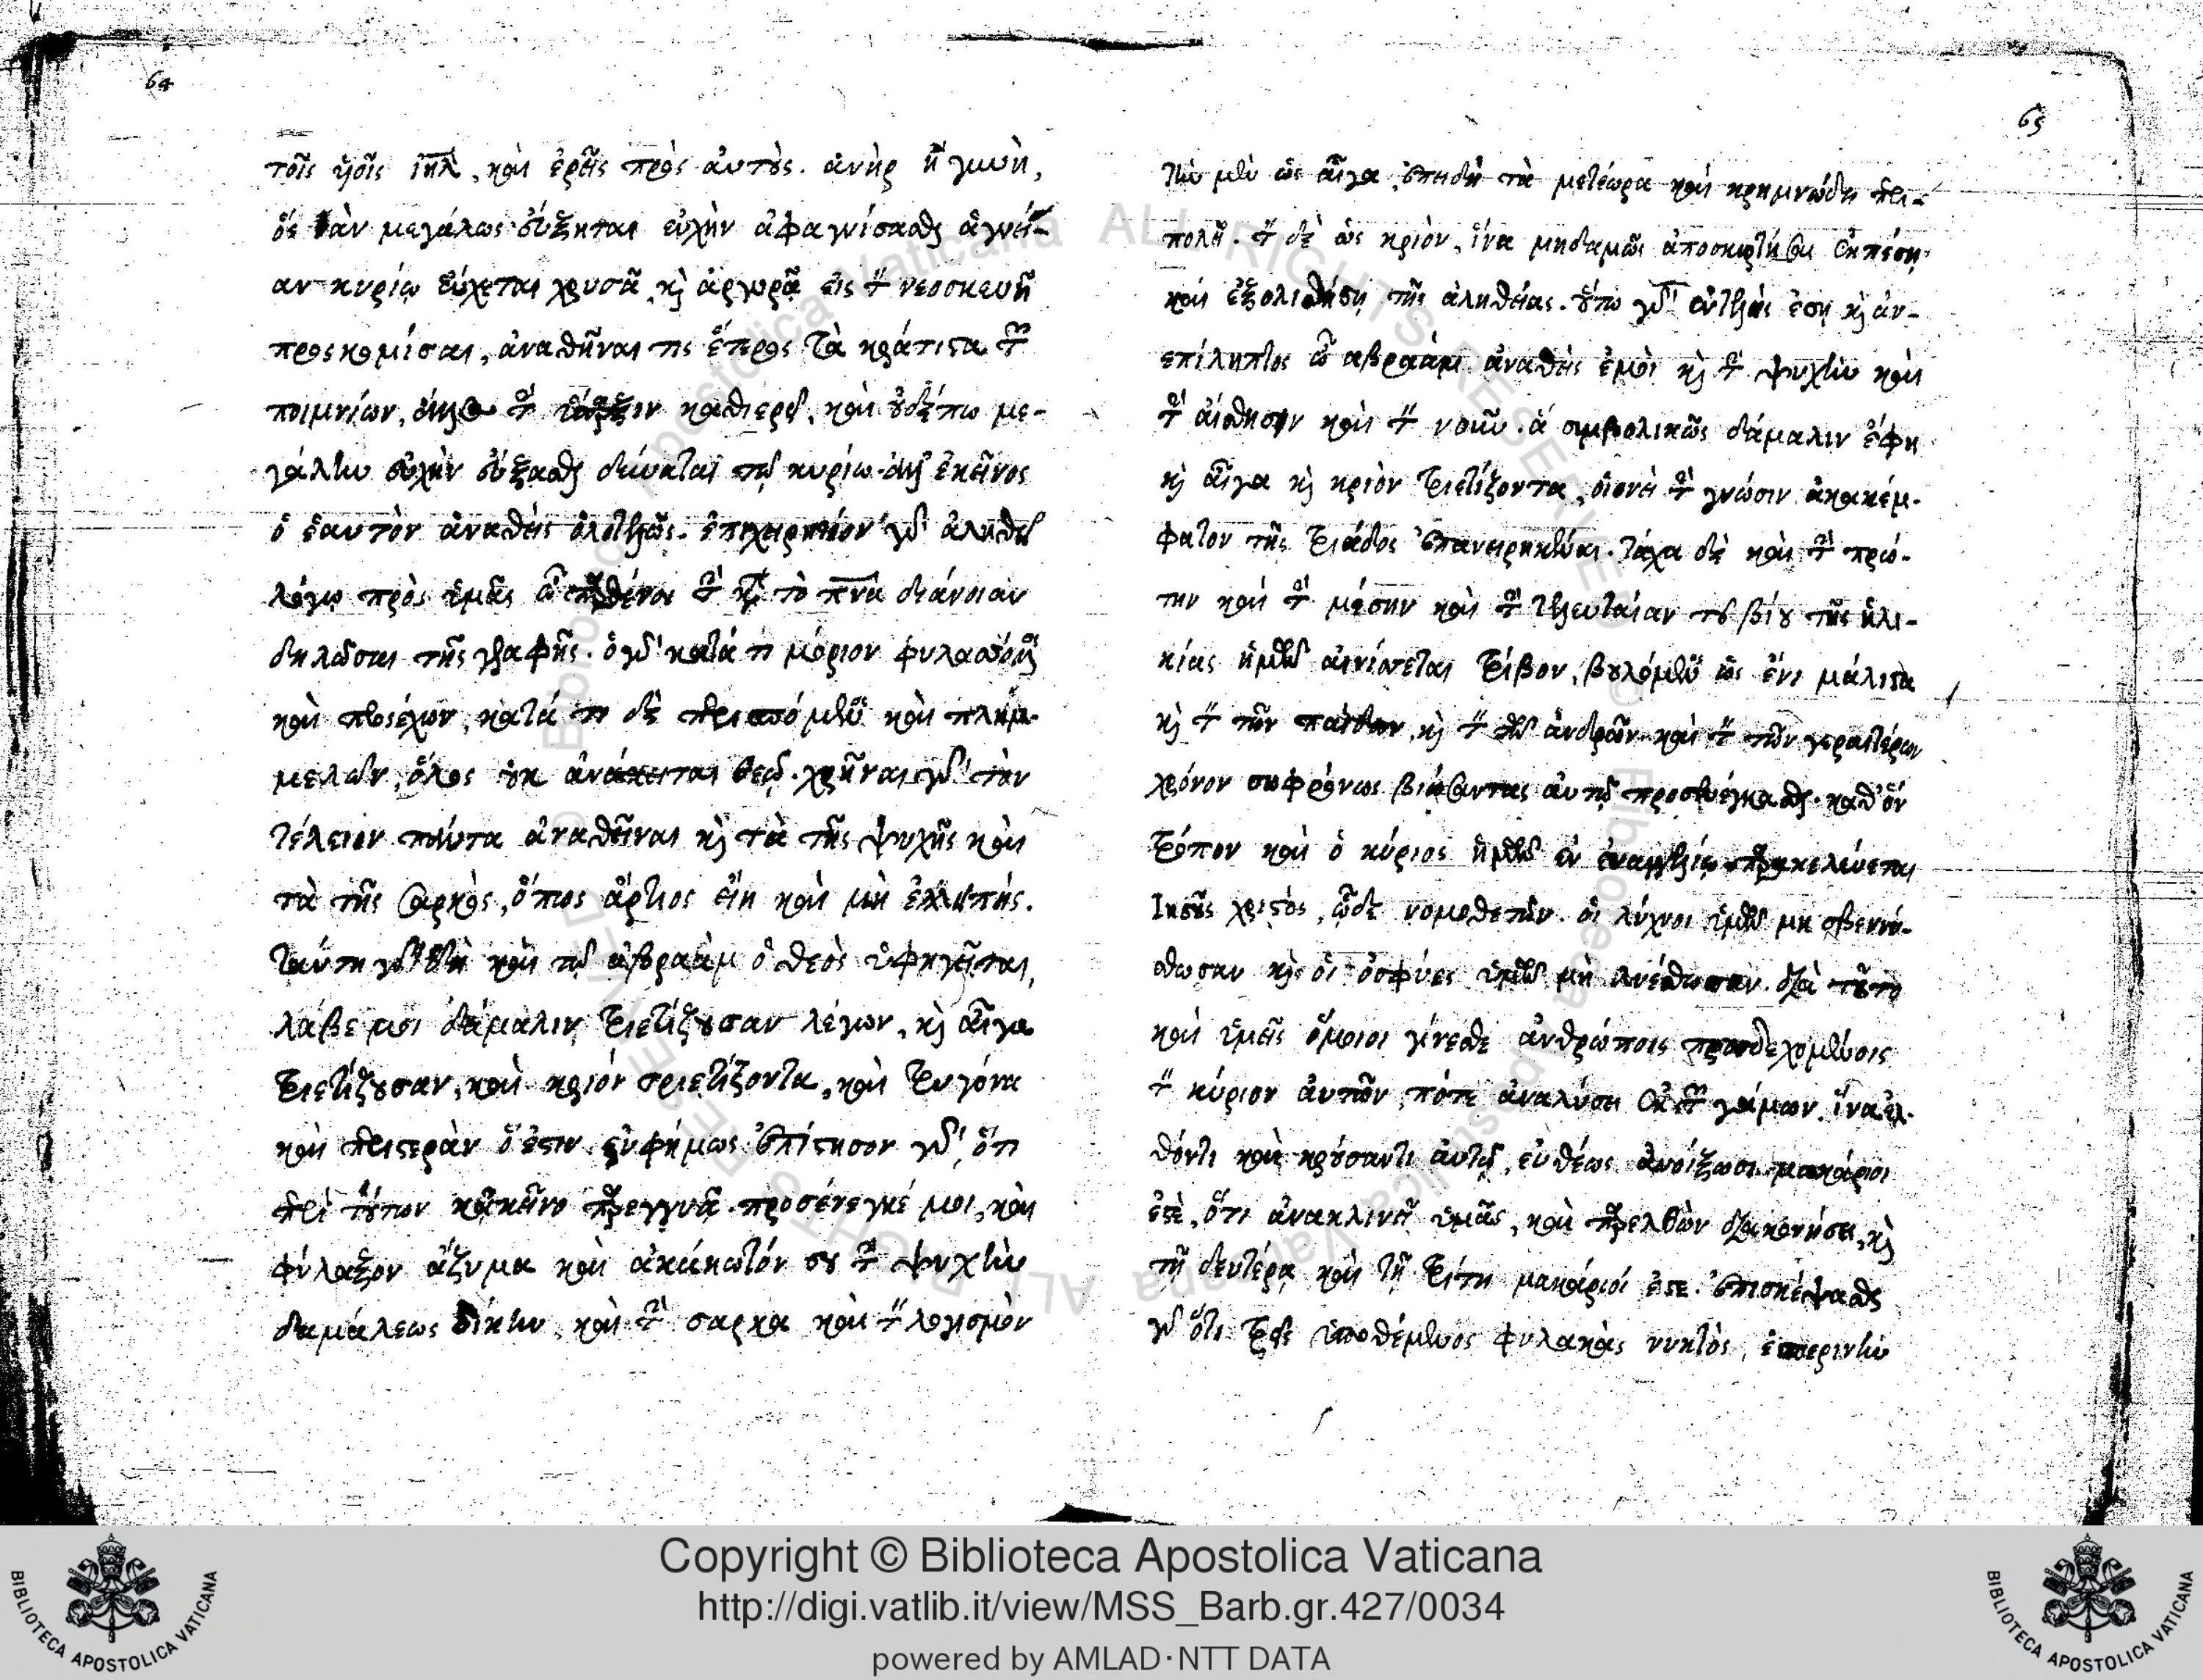 64
τοῖς υἱοῖς ἰηλ, καὶ ἐρεῖς πρὸς αὐτοὺς. ἀνὴρ ἢ γυνὴ,
ὃς ἐὰν μεγάλως εὔξηται εὐχὴν ἀφαγνίσασθαι ἁγνεί-
αν κυρίῳ εὔχεται χρυσᾶ, καὶ ἀργυρᾶ εἰς τὸν νεοσκευῆ
προσκομίσαι, ἀναθῆναι τις ἕτερος τὰ κράτιστα τῶν
ποιμνίων, τὴν καθιεροῖ, καὶ οὐδέπω με-
γάλην εὐχὴν εὔξασθαι δύναται τῷ κυρίῳ. ἀλλ' ἐκεῖνος
ὁ ἑαυτὸν ἀναθεὶς ὁλοτελῶς. ἐπιχειρητέον γὰρ ἀληθεῖ
λόγῳ πρὸς ὑμᾶς ὦ παρθένοι τὴν κατὰ τὸ πνα διάνοιαν
δηλῶσαι τῆς γραφῆς. ὁ γὰρ κατά τι μόριον φυλασσόμενος
καὶ προσέχων, κατά τι δὲ περισπώμενος καὶ πλημ-
μελῶν, ὅλος οὐκ ἀνάκειται θεῷ. χρῆναι γὰρ τὸν
τέλειον πάντα ἀναθεῖναι καὶ τὰ τῆς ψυχῆς καὶ
τὰ τῆς σαρκὸς, ὅπως ἄρτιος εἴη καὶ μὴ ἐλλιπής.
ταύτῃ γὰρ δὴ καὶ τῷ ἀβραὰμ ὁ θεὸς ὑφηγεῖται,
λάβε μοι δάμαλιν τριετίζουσαν λέγων, καὶ αἶγα
τριετίζουσαν, καὶ κριὸν τριετίζοντα, καὶ τρυγόνα
καὶ περιστερὰν ὅ ἐστιν εὐφήμως ἐπίστησον γὰρ, ὅτι
περὶ τούτων κἀκεῖνο παρεγγυᾶ. προσένεγκέ μοι, καὶ
φύλαξον ἄζυμα καὶ ἀκάκωτόν σου τὴν ψυχὴν
δαμάλεως δίκην, καὶ τὴν σαρκα καὶ τὸν λογισμὸν
65
τὴν μὲν ὡς αἶγα, ἐπειδὴ τὰ μετέωρα καὶ κρημνώδη περι-
πολεῖ. τὸν δὲ ὡς κριὸν, ἵνα μηδαμῶς ἀποσκιρτήσῃ ἐκπέσῃ
καὶ ἐξολισθήσῃ τῆς ἀληθείας. οὕτω γὰρ εὐτελὴς ἔσῃ καὶ ἀν-
επίληπτος ὦ ἀβραὰμ ἀναθεὶς ἐμοὶ καὶ τὴν ψυχὴν καὶ
τὴν αἴσθησιν καὶ τὸν νοῦν. ἃ συμβολικῶς δάμαλιν ἔφη
καὶ αἶγα καὶ κριὸν τριετίζοντα, οἱονεὶ τὴν γνῶσιν ἀκακέμ-
φατον τῆς τριάδος ἐπανειρηκέναι. τάχα δὲ καὶ τὴν πρώ-
την καὶ τὴν μέσην καὶ τὴν τελευταίαν τοῦ βίου τῆς ἡλι-
κίας ἡμῶν αἰνίττεται τρίβον, βουλόμενος ὡς ἔνι μάλιστα
καὶ τὸν τῶν παίδων, καὶ τὸν τῶν ἀνδρῶν καὶ τὸν τῶν γεραιτέρων
χρόνον σωφρόνως βιώσαντας αὐτῷ προσενέγκασθαι. καθ' ὃν
τρόπον καὶ ὁ κύριος ἡμῶν ἐν εὐαγγελίῳ παρακελεύεται
Ἰησοῦς χριστός, ὧδε νομοθετῶν. οἱ λύχνοι ὑμῶν μὴ σβεννύ-
σθωσαν καὶ αἱ ὀσφύες ὑμῶν μὴ λυέσθωσαν. διὰ τοῦτο
καὶ ὑμεῖς ὅμοιοι γίνεσθε ἀνθρώποις προσδεχομένοις
τὸν κύριον αὐτῶν, πότε ἀναλύσει ἐκ τῶν γάμων. ἵνα ἐλ-
θόντι καὶ κρούσαντι αὐτῷ, εὐθέως ἀνοίξωσι. μακάριοι
ἐστέ, ὅτι ἀνακλινεῖ ὑμᾶς, καὶ παρελθὼν διακονήσει, καὶ
τῇ δευτέρᾳ καὶ τῇ τρίτῃ μακάριοί ἐστε. ἐπισκέψασθαι
γὰρ ὅτι τρεῖς ὑποθέμενος φυλακὰς νυκτὸς, ἑσπερινὴν
Copyright © Biblioteca Apostolica Vaticana
http://digi.vatlib.it/view/MSS_Barb.gr.427/0034
powered by AMLAD·NTT DATA
BIBLIOTECA APOSTOLICA VATICANA
BIBLIOTECA APOSTOLICA VATICANA